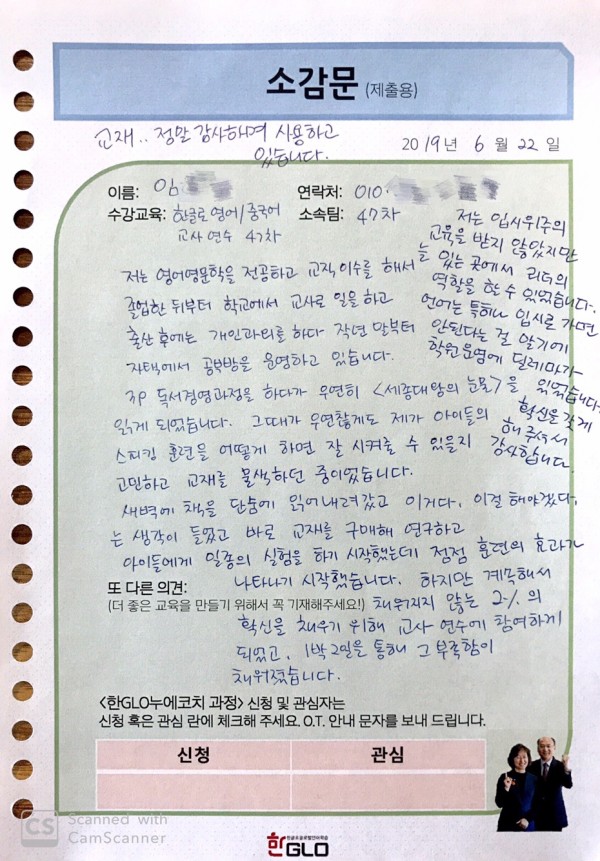 소감문 (제출용)
교재.. 정말 감사하며 사용하고
있습니다.
2019년 6월 22일
이름: 임
연락처: 010.
수강교육: 한글로영어/중국어
교사연수 47차
소속팀: 47차
저는 영어영문학을 전공하고 교직이수를 해서
졸업한 뒤부터 학교에서 교사로 일을 하고
출산 후에는 개인과외를 하다 작년 말부터
자택에서 공부방을 운영하고 있습니다.
3P 독서경영과정을 하다가 우연히 <세종대왕의 눈물>을
읽게 되었습니다. 그때가 우연찮게도 제가 아이들의
스피킹 훈련을 어떻게 하면 잘 시켜줄 수 있을지
고민하고 교재를 물색하던 중이었습니다.
새벽에 책을 단숨에 읽어내려갔고 이거다. 이걸 해야겠다.
는 생각이 들었고 바로 교재를 구매해 연구하고
아이들에게 일종의 실험을 하기 시작했는데 점점 훈련의 효과가
나타나기 시작했습니다. 하지만 계속해서
채워지지 않는 2%의
혁신을 채우기 위해 교사 연수에 참여하게
되었고, 1박 2일을 통해 그 부족함이
채워졌습니다.
저는 입시위주의
교육을 받지 않았지만
늘 있는 곳에서 리더의
역할을 할 수 있었습니다.
언어는 특히나 입시로 가면
안된다는 걸 알기에
학원운영에 딜레마가
있었습니다.
혁신을 갖게
해 주셔서
감사합니다.
또 다른 의견:
(더 좋은 교육을 만들기 위해서 꼭 기재해주세요!)
<한GLO누에코치 과정> 신청 및 관심자는
신청 혹은 관심 란에 체크해 주세요. O.T. 안내 문자를 보내 드립니다.
신청 관심
CS Scanned with
CamScanner
한글로글로벌언어학습
한GLO